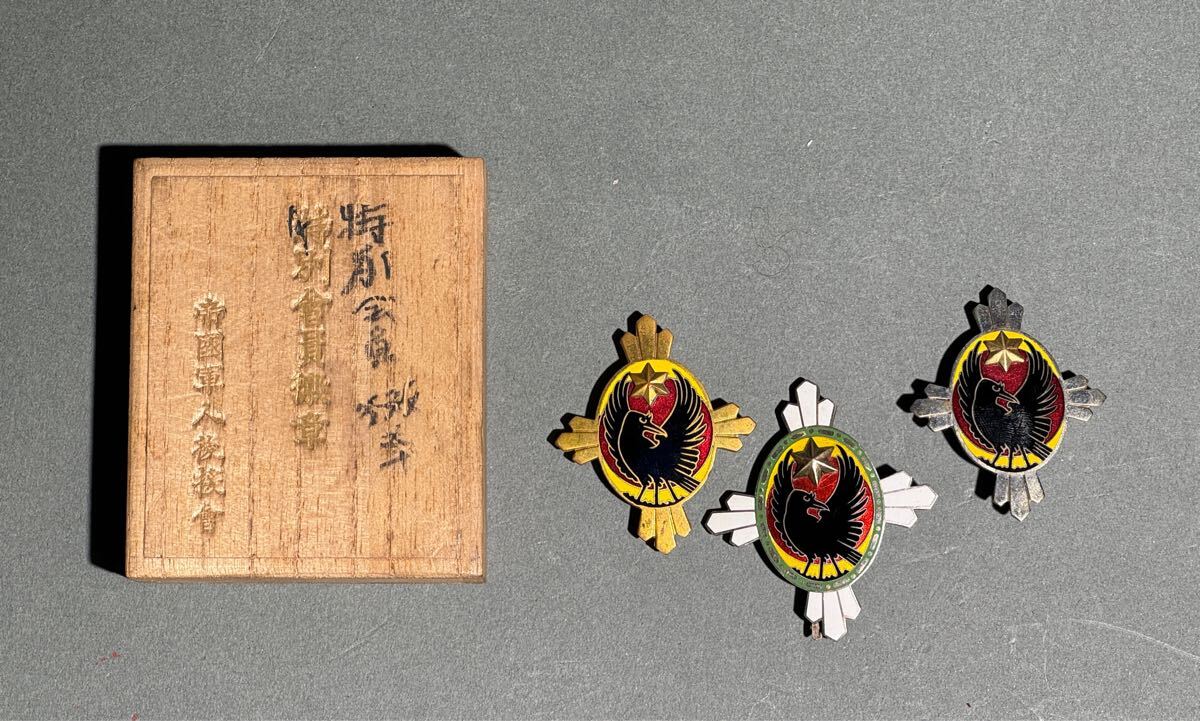 特別会員徽章
特別會員徽章
帝國軍人後援會